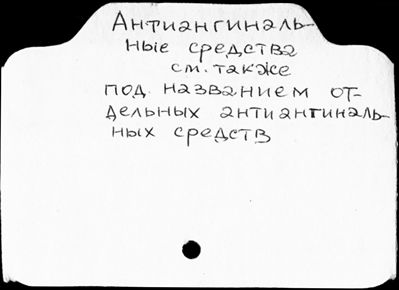 Антиангиналь-
ные средства
см. также
под названием от-
дельных антиангиналь-
ных средств